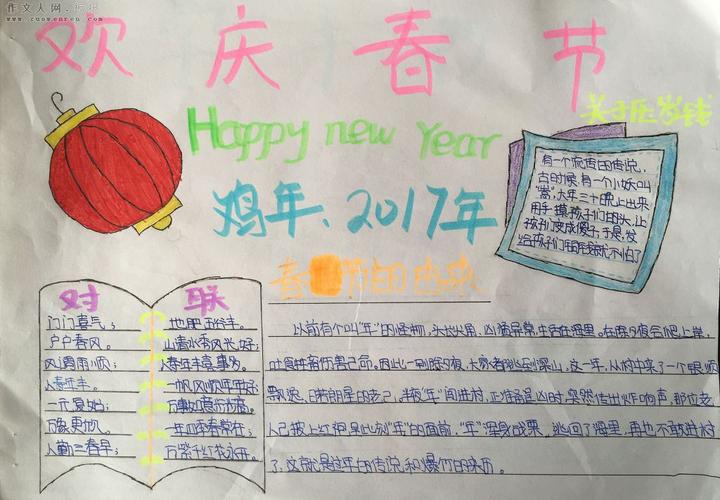 作文人网
www.zuowenren.com
欢庆春节
Happy new Year
鸡年、2017年
关于压岁钱
有一个流传的传说，
古时候有一个小妖叫
“祟”，大年三十晚上出来
用手摸孩子们的头，让
孩子们变成傻子，于是，发
给孩子们
春节的由来
对联
门门喜气；
户户春风；
风调雨顺；
人寿年丰。
一元复始；
万象更
人勤三春早；
地肥五谷丰。
山清水秀风光好；
人寿年丰喜事
一帆风顺年年好；
万事如意步步高。
一年四季春常在；
万紫千红永开。
以前有个叫“年”的怪物，头长火角，凶猛异常，生活在海里。在除夕夜会爬上岸，
吞食牲畜伤害人命。因此一到除夕夜，大家者逃到深山，这一年，从村中来了一个银须
飘逸，目若朗星的老人，半夜“年”闯进村，正准备逞凶时，突然传出炸响声，那位老
人已披上红袍“年”的面前，“年”浑身战栗，逃回了海里，再也不敢进村
了，这就是过年的传说和爆竹的来历。